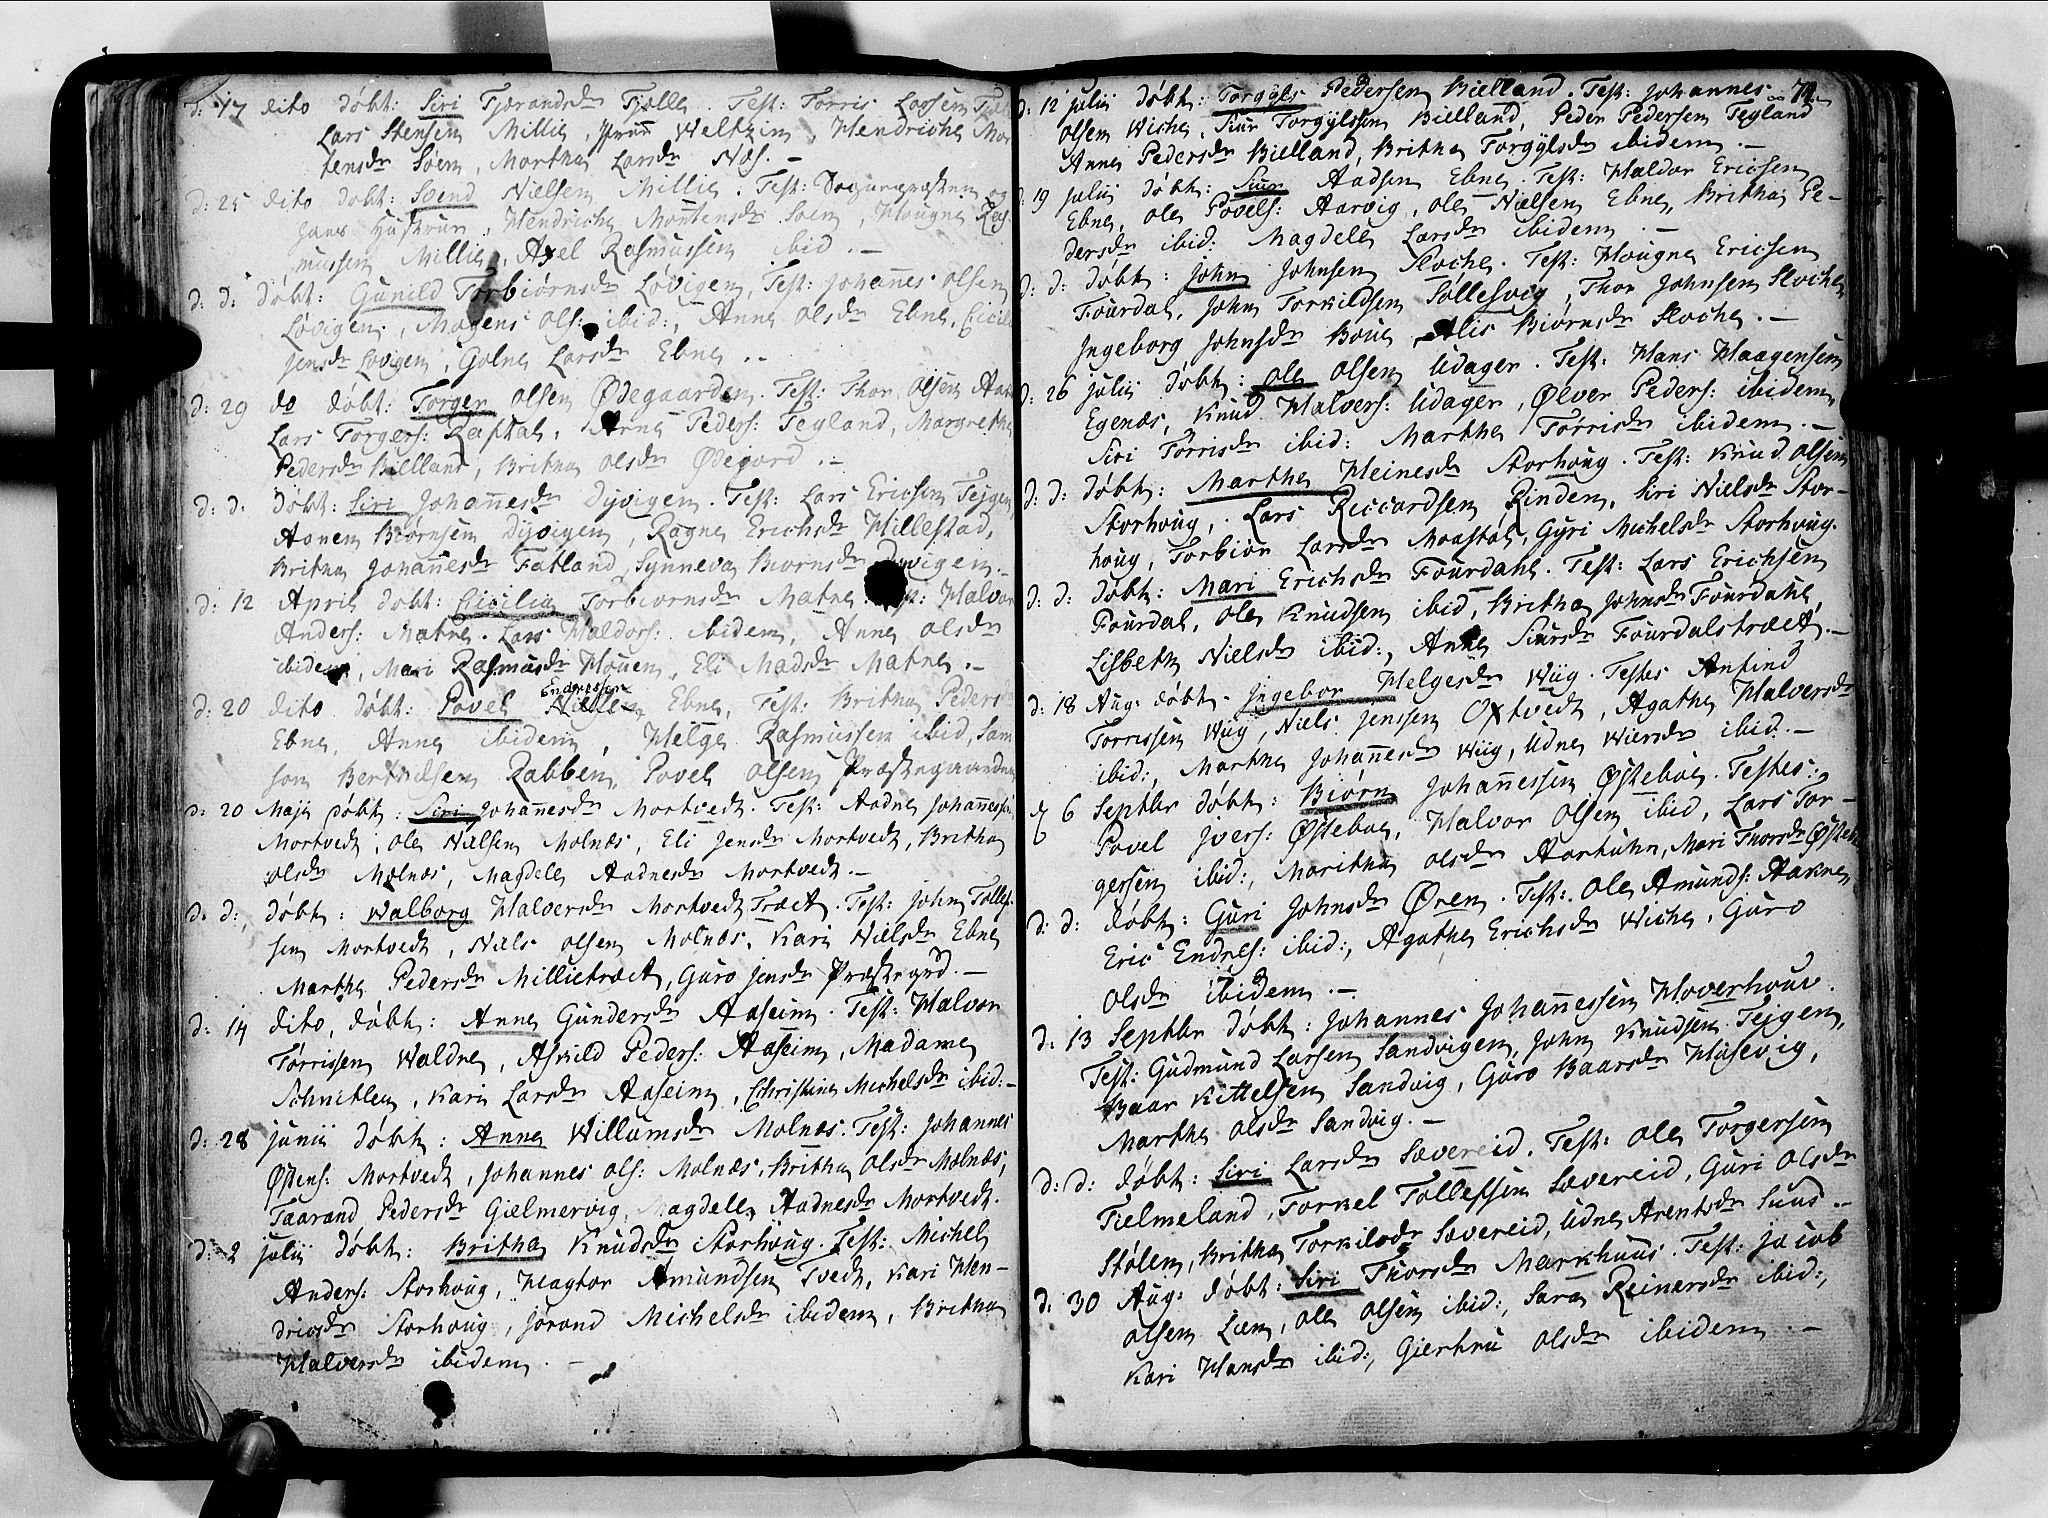 d: 17 dito døbt: Siri Tjerandsdr Fjælle. Test: Torris Larssen
Lars Stensen Millie, Weltzin, Hendriche Mor
tensdr Søem, Marthe Larsdr Næs. –
d: 25 dito døbt: Svend Nielsen Millie. Test: Sognepræsten og
hans Hustrue, Hendriche Mortensdr Søem, Hougne Ras
mussen Millie, Axel Rasmussen ibid. –
d: d: døbt: Gunild Torbiørnsdr Løvigen, Test: Johannes Olsen
Løvigen, Mogens Ols: ibid:, Anne Olsdr Ebne, Cicili
Jensdr Løvigen, Golne Larsdr Ebne. –
d: 29 do døbt: Torger Olsen Ødegaarden. Test: Thor Olsen
Lars Torgers: Arne Peders: Tegland, Margrethe
Pedersdr Bielland, Britha Olsdr Ødegord. –
d: d. døbt: Siri Johannesdr Dyvigen. Test: Lars Ericsen Tejgen,
Aanen Biørnsen Dyvigen, Ragne Erichsdr Hillestad,
Britha Johannesdr Fatland, Synneva Biørnsdr Dyvigen. –
d: 12 April døbt: Cicilia Torbiørnsdr Matre. Test: Halvor
Anders: Matre. Lars Haldors: ibidem, Anne Olsdr
ibidem, Mari Rasmusdr Houen, Eli Madsdr Matre. –
Endressen
d: 20 dito døbt: Povel Nielsen Ebne, Test: Britha Pedersdr
Ebne, Anne ibidem, Helge Rasmussen ibid, Sam
son Berthelsen Rabben, Povel Olsen Præstegaarden
d: 20 Maji døbt: Siri Johannesdr Mortvedt. Test: Aadne Johannessen
Mortvedt, Ole Nielsen Molnæs, Eli Jensdr Mortvedt, Britha
Olsdr Molnæs, Magdele Aadnesdr Mortvedt. –
d: d: døbt: Walborg Halversdr Mortvedt Træet. Test: John Tollef
sen Mortvedt, Niels Olsen Molnæs, Kari Nielsdr Ebne
Marthe Pedersdr Millietræet, Guro Jensdr Præstegrd. –
d: 14 dito, døbt: Anne Gundersdr Aaseim. Test: Halvor
Torrissen Waldre, Askild Peders: Aaseim, Madame
Schnitlen, Kari Larsdr Aaseim, Christine Michelsdr ibid: –
d: 28 Junii døbt: Anne Willumsdr Molnæs. Test: Johannes
Østens: Mortvedt, Johannes Ols: Molnæs, Britha Olsdr Molnæs,
Taarand Pedersdr Gielmervig, Magdele Aadnesdr Mortvedt.
d: 2 Julii døbt: Britha Knudsdr Storhoug. Test: Michel
Anders: Storhoug, Hagtor Amundsen Tvedt, Kari Hen-
dricsdr Storhoug, Jorand Michelsdr ibidem, Britha
Halversdr ibidem. –
d: 12 Julii døbt: Torgyls Pedersen Bielland. Test: Johannes 74.
Olsen Wiche, Siur Torgylssen Bielland, Peder Pedersen Tegland
Anne Pedersdr Bielland, Britha Torgylsdr ibidem. –
d: 19 Julii døbt: Siur Aadsen Ebne. Test: Haldor Ericsen
Ebne, Ole Povels: Aarvig, Ole Nielsen Ebne, Britha Pe-
dersdr ibid: Magdele Larsdr ibidem. –
d: d: døbt: John Johnsen Floche. Test: Hougne Ericsen
Fourdal, John Torkildsen Tollefsvig, Thor Johnsen Floche
Ingeborg Johnsdr Boue, Alis Biørnsdr Floche. –
d: 26 Julii døbt: Ole Olsen Udager. Test: Hans Haagensen
Egenæs, Knud Halvers: Udager, Ølver Peders: ibidem,
Siri Torrisdr ibid: Marthe Torrisdr ibidem. –
d: d: døbt: Marthe Heinesdr Storhoug. Test: Knud Olsen
Storhoug, Lars Riccardsen Rinden, Siri Nielsdr Stor-
houg, Torbiør Larsdr Maastøl, Gyri Michelsdr Storhoug.
d: d: døbt: Mari Erichsdr Fourdahl. Test: Lars Erichsen
Fourdal, Ole Knudsen ibid, Britha Johnsdr Fourdahl,
Lisbeth Nielsdr ibid:, Anne Siursdr Fourdalstræet. –
d: 18 Aug: døbt. Ingebor Helgesdr Wiig. Testes Anfind
Torrissen Wiig, Niels Jenssen Oxtvedt, Agathe Halversdr
ibid:, Marthe Johannesdr Wiig, Udne Wiersdr ibid. –
d: 6 Septbr døbt: Biørn Johannessen Østeboe. Testes:
Povel Ivers: Østeboe, Halvor Olsen ibid, Lars Tor-
gersen ibid:, Maritha Olsdr Aarhuhn, Mari Thorsdr Østeb
d: d: døbt: Guri Johnsdr Øren. Test: Ole Amunds: Aakre,
Eric Endres: ibid:, Agathe Erichsdr Wiche, Guro
Olsdr ibidem. –
d: 13 Septbr døbt: Johannes Johannessen Hoverhoue.
Test: Gudmund Larsen Sandvigen, John Knudsen Tejgen,
Baar Kittelsen Sandvig, Guro Baarsdr Husevig,
Marthe Olsdr Sandvig. –
d: d: døbt: Siri Larsdr Sævereid. Test: Ole Torgersen
Fielmeland, Torkel Tollefsen Sævereid, Guri Olsdr
Stølen, Britha Torkilsdr Sævereid, Udne Arentsdr Suus. –
d: 30 Aug: døbt: Siri Thorsdr Markhuus. Test: Jacob
Olsen Lien, Ole Olsen ibid:, Sara Reinersdr ibid:,
Kari Hansdr ibid:, Giertru Olsdr ibidem. –